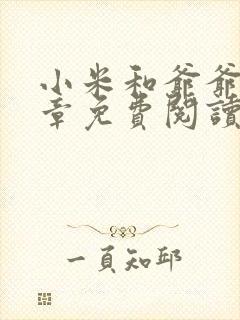 小米和爺爺
章免費閱讀
一頁知邱